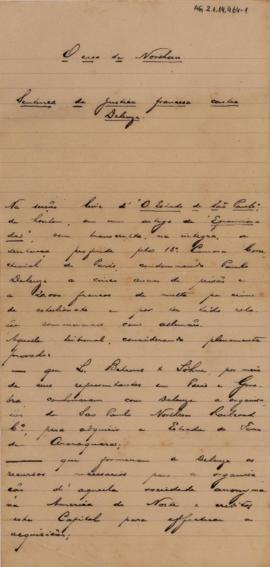 AG 2.1.19.464-1
O caso da Northern
Sentença da Justiça franceza contra
Deleuze.
Na secção livre d' "O Estado de São Paulo"
de hontem, em um artigo de "Epaminondas",
vem transcripta, na integra, a
sentença proferida pela 13ª Camara Correccional
de Paris, condemnando Paulo
Deleuze a cinco annos de prisão e
a 3.000 francos de multa por crime
de estellionato e por ter tido relações
commerciaes com allemães.
Aquelle tribunal, considerando plenamente
provado:
— que L. Behrens & Sohne, por meio
de seus representantes em Paris e Genebra
combinaram com Deleuze a organisação
da São Paulo Northern Railroad
Cº, para adquirir a Estrada de Ferro
de Araraquara;
— que forneceram a Deleuze os
recursos necessarios para a organisação
d'aquella sociedade anonyma
na America do Norte e
este Capital para effectuar a
acquisição;